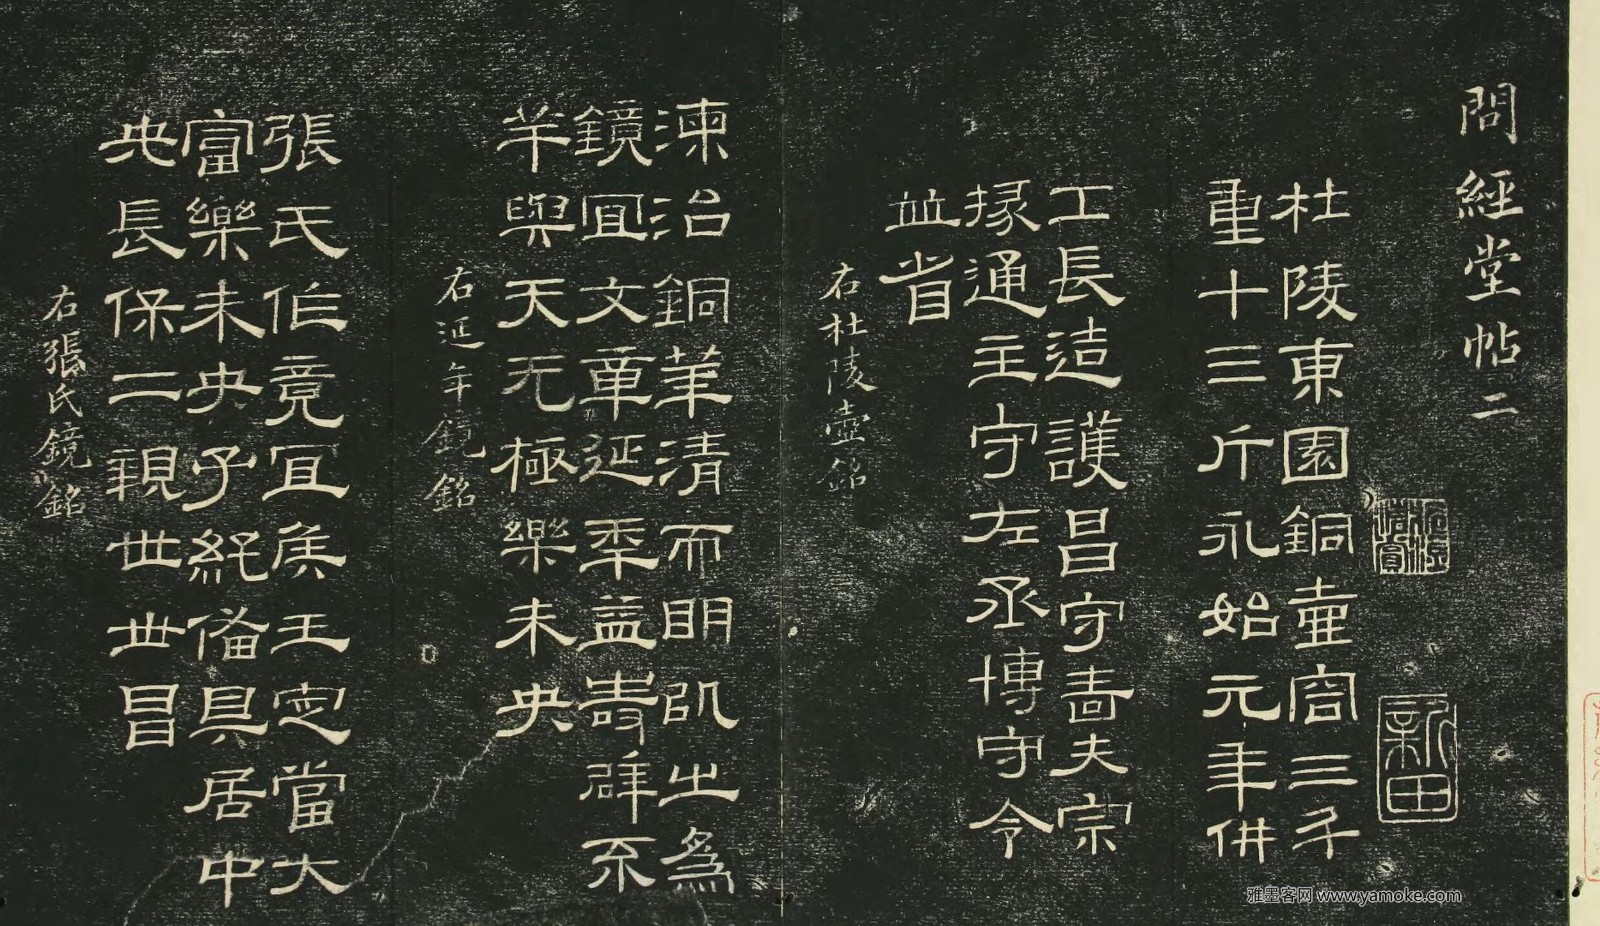 問經堂帖二
杜陵東園銅壷容三斗
重十三斤永始元年供
工長造護昌守嗇夫宗
掾通主守左丞博守令
並省
右杜陵壺銘
湅治銅華清而明以之為
鏡冝文章延年益壽辟不
羊與天无極樂未央
右延年鏡銘
張氏作竟冝侯王家當大
富樂未央子孫備具居中
央長保二親世世昌
右張氏鏡銘
新田
雅墨客网 www.yamoke.com